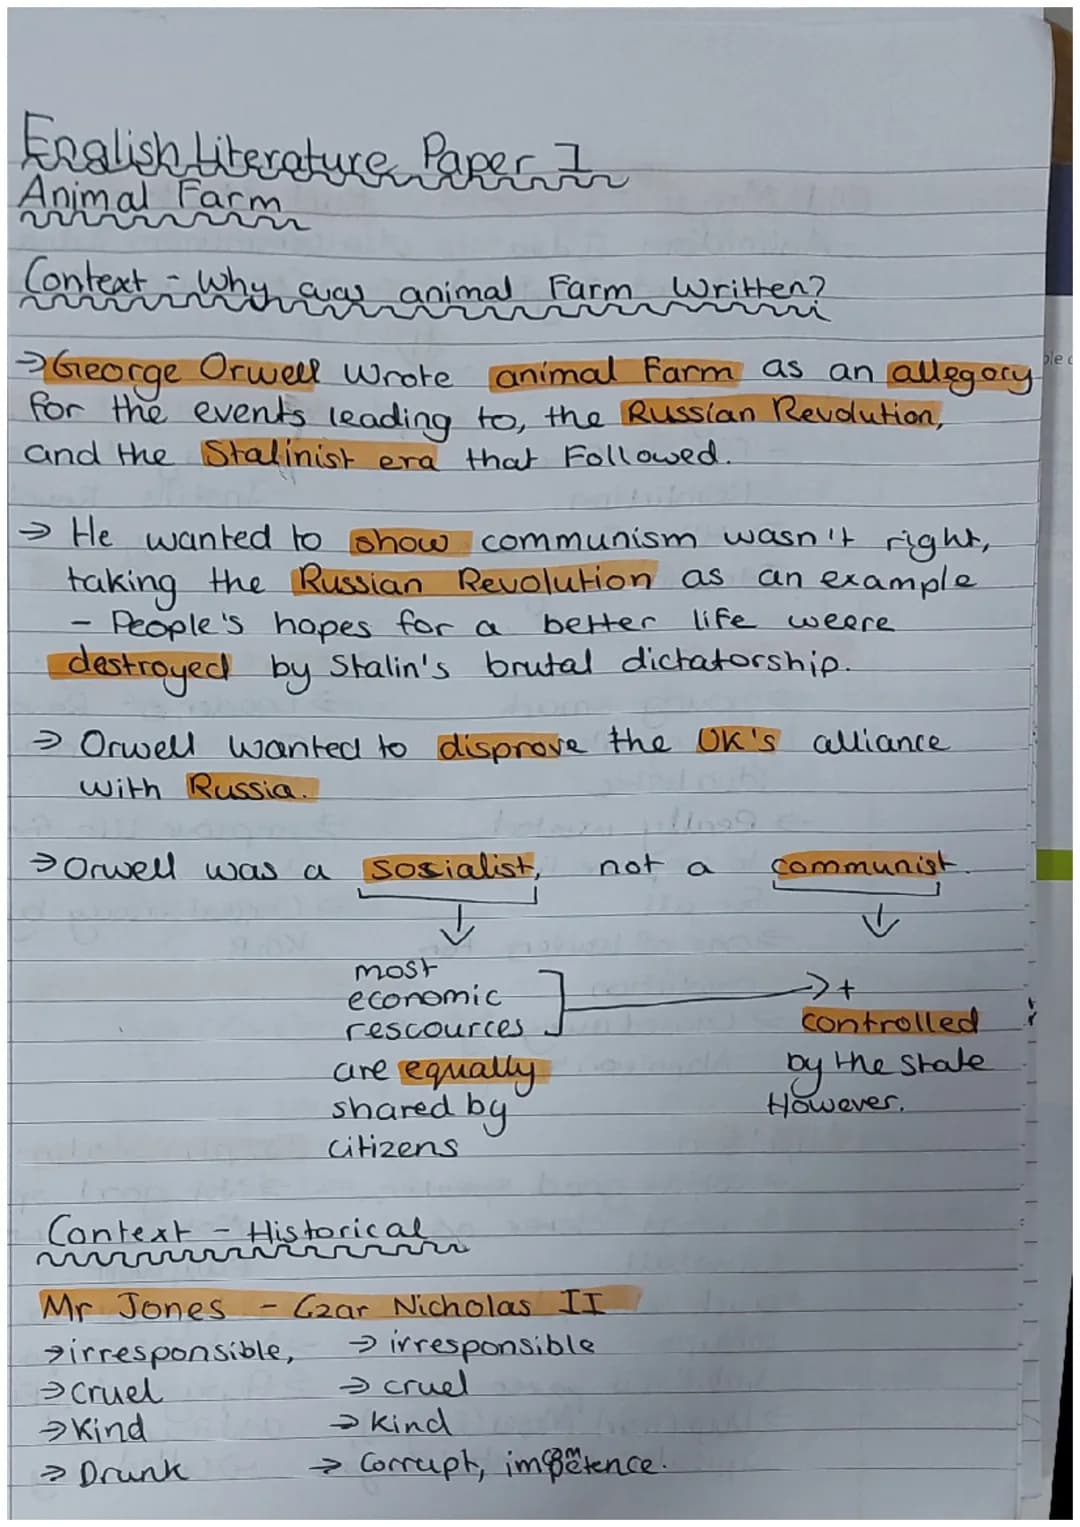 English Literature Paper 1
Animal Farm
Context - Why was animal Farm Written?
→ George Orwell wrote animal Farm as an allegory
for the events leading to, the Russian Revolution,
and the Stalinist era that Followed.
→ He wanted to show communism wasn't right,
taking the Russian Revolution as an example
- People's hopes for a better life weere
destroyed by Stalin's brutal dictatorship.
→ Orwell wanted to disprove the UK's alliance
with Russia.
→ Orwell was a sosialist, not a communist.
most
economic
rescources
are equally
shared by
citizens
→ +
controlled
by the state
However.
Context - Historical
Mr Jones - Czar Nicholas II
→ irresponsible, → irresponsible
→ cruel → cruel
→ Kind → kind
→ Drunk → Corrupt,